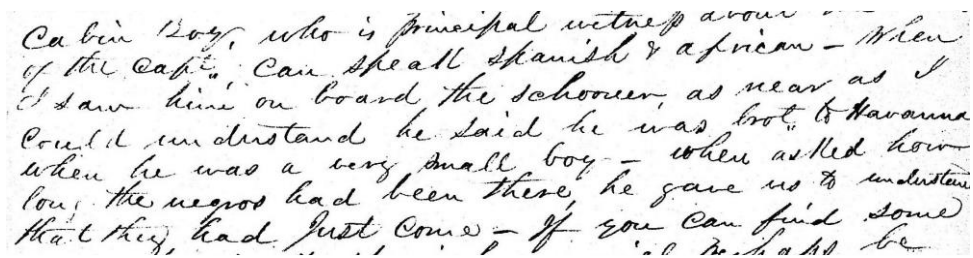 Cabin Boy, who is principal witness about
of the Capt., Can speak Spanish & african – When
I saw him on board the schooner, as near as I
Could understand he said he was brot. to Havanna
when he was a very small boy – when asked how
long the negros had been there, he gave us to understand
that they had Just Come – If you can find some
perhaps be